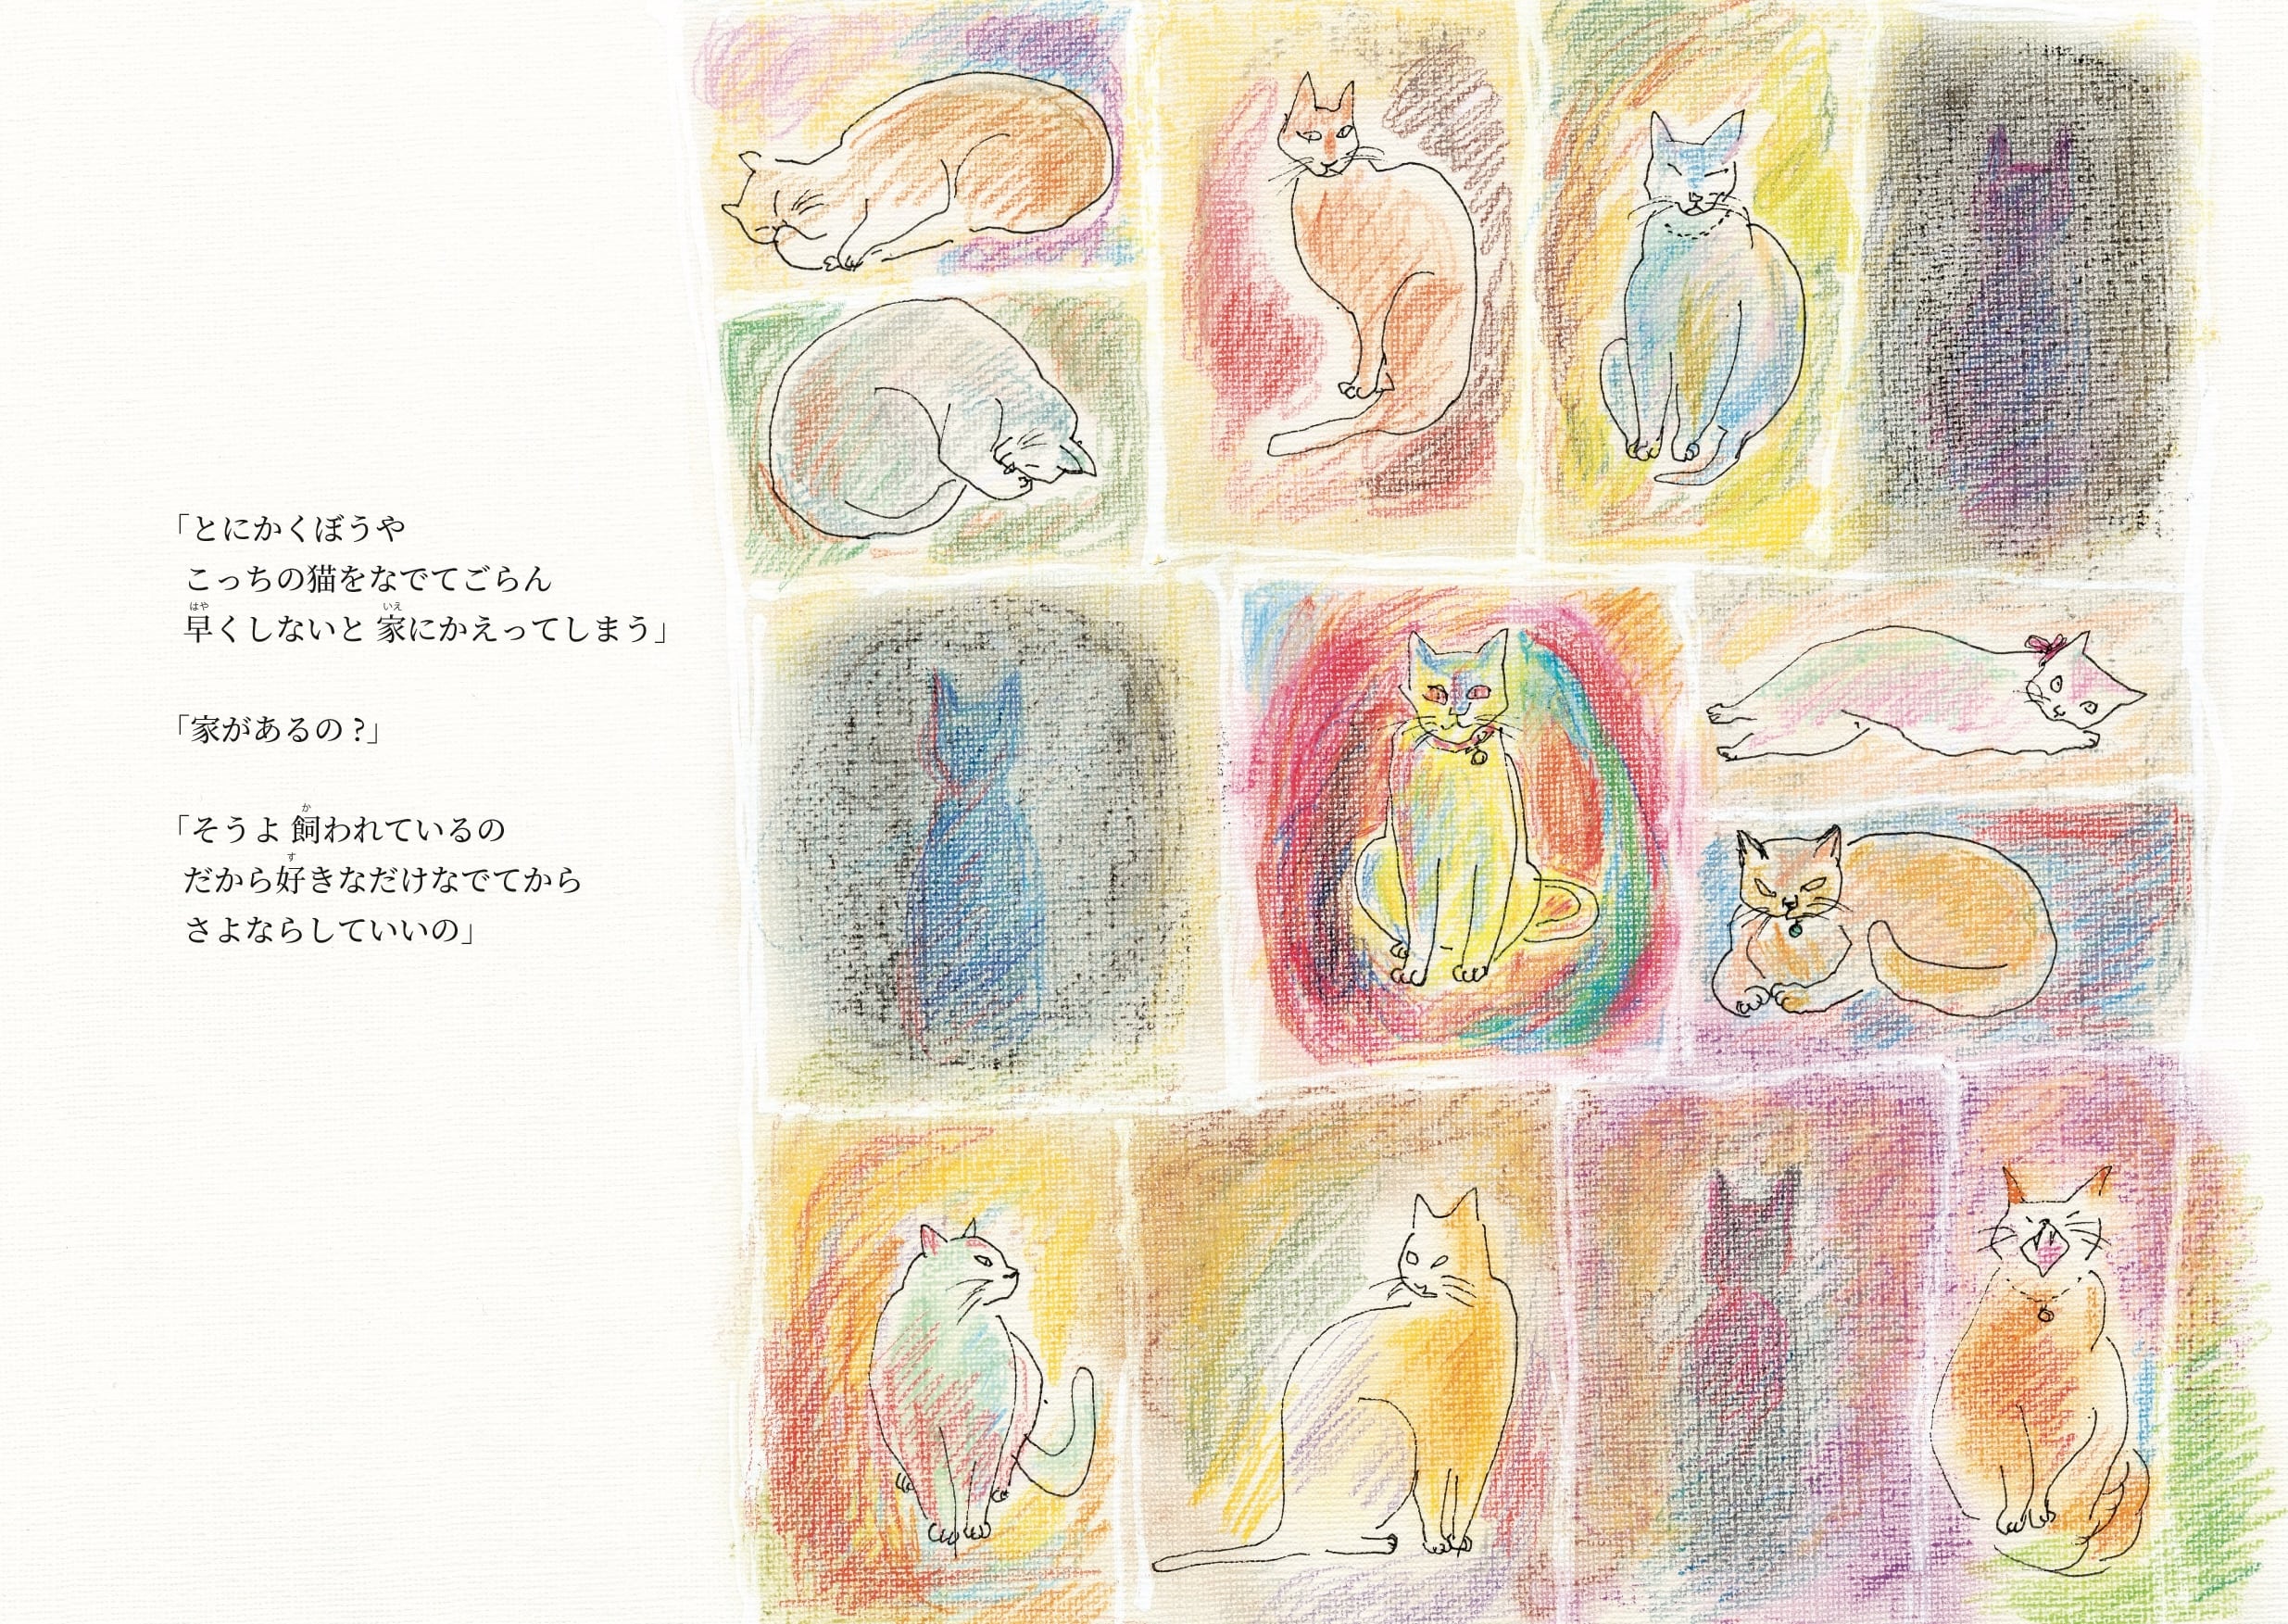 「とにかくぼうや
こっちの猫をなでてごらん
早くしないと 家にかえってしまう」
「家があるの?」
「そうよ 飼われているの
だから好きなだけなでてから
さよならしていいの」